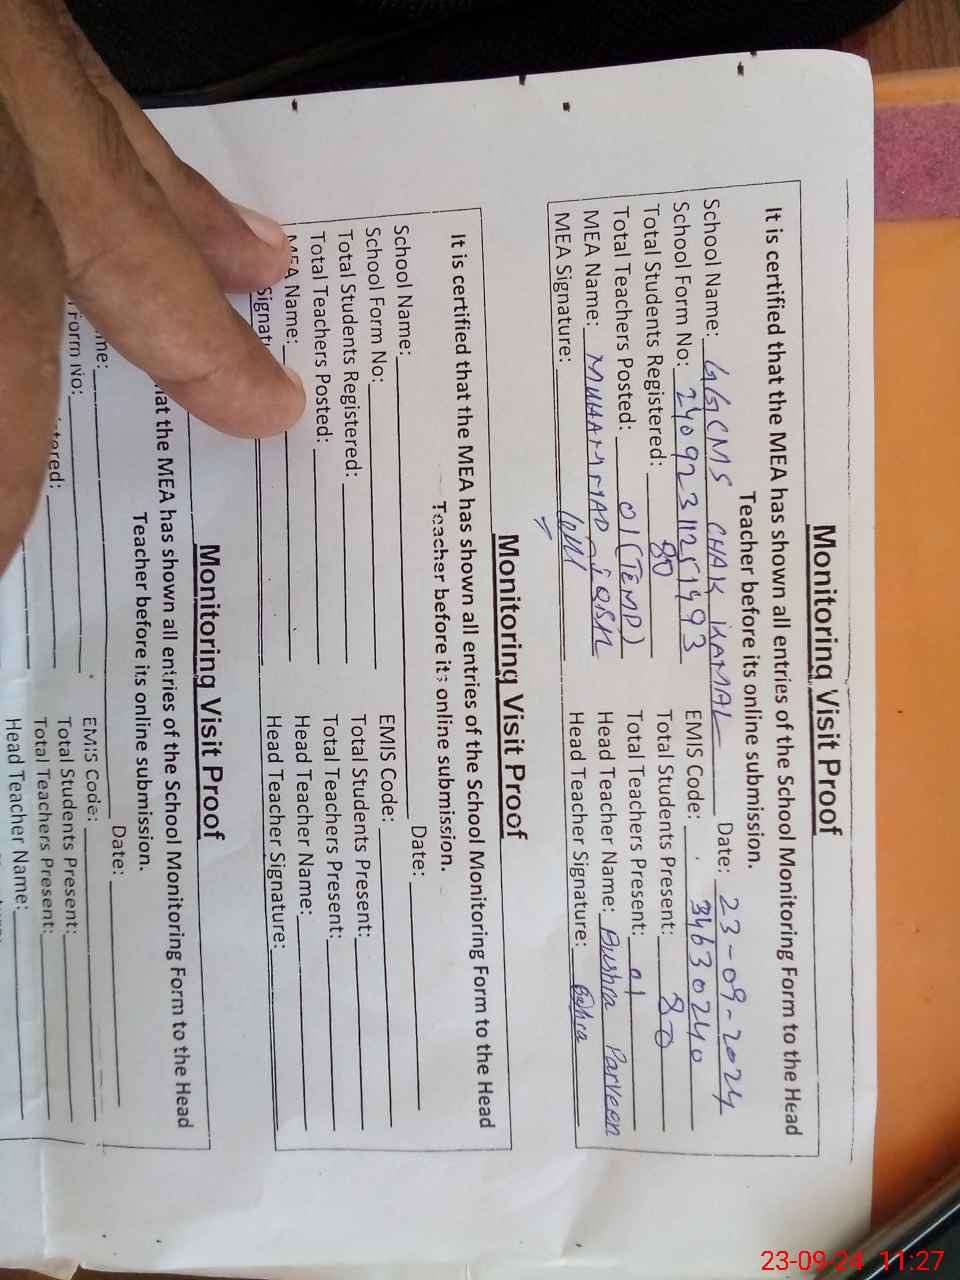 Monitoring Visit Proof
It is certified that the MEA has shown all entries of the School Monitoring Form to the Head
Teacher before its online submission.
School Name: GGCMS CHAK KAMAL Date: 23-09-2024
School Form No: 24092311251493 EMIS Code: 34630240
Total Students Registered: 80 Total Students Present: 80
Total Teachers Posted: 01 (TEMP) Total Teachers Present: 01
MEA Name: MUHAMMAD Head Teacher Name: Bushra Parveen
MEA Signature: Head Teacher Signature: Bushra
Monitoring Visit Proof
It is certified that the MEA has shown all entries of the School Monitoring Form to the Head
Teacher before its online submission.
School Name: Date:
School Form No: EMIS Code:
Total Students Registered: Total Students Present:
Total Teachers Posted: Total Teachers Present:
MEA Name: Head Teacher Name:
Signat Head Teacher Signature:
Monitoring Visit Proof
hat the MEA has shown all entries of the School Monitoring Form to the Head
Teacher before its online submission.
me: Date:
Form No: EMIS Code:
istered: Total Students Present:
Total Teachers Present:
Head Teacher Name:
23-09-24 11:27